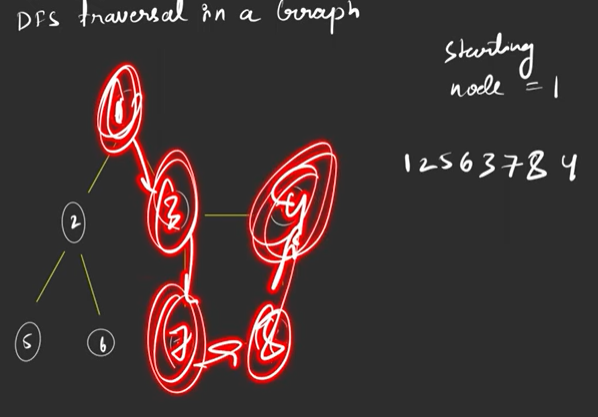 DFS traversal in a Graph
Starting
node = 1
1 2 5 6 3 7 8 4
1
3
4
2
5
6
7
8